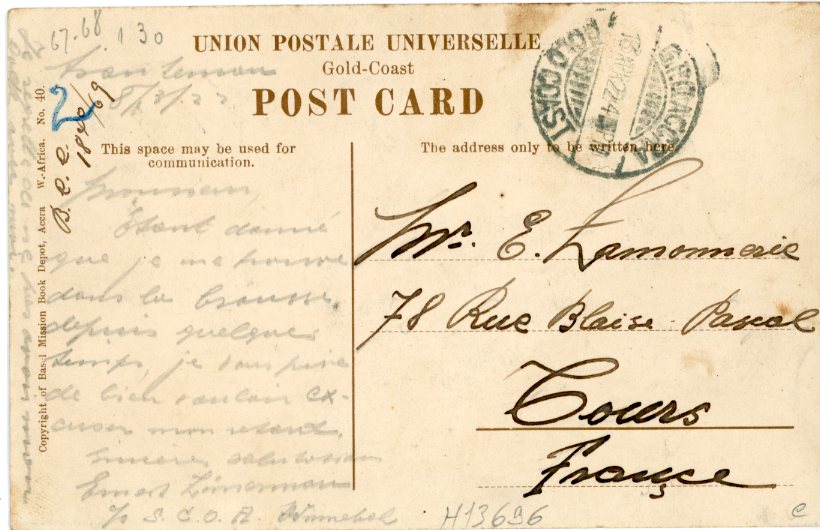 67-68
1.30
UNION POSTALE UNIVERSELLE
Gold-Coast
POST CARD
This space may be used for
communication.
The address only to be written here.
Copyright of Basel Mission Book Depot, Accra W.-Africa. No. 40.
2
B. C. C.
ACCRA
GOLD COAST
Monsieur,
Etant donné
que je me trouve
dans la brousse,
depuis quelque
temps, je vous prie
de bien vouloir ex-
cuser mon retard.
Sinceres salutations
Ernest
S. C. O. A. Winnebah
Mr. E. Lamonnerie
78 Rue Blaise Pascal
Tours
France
H13696
c